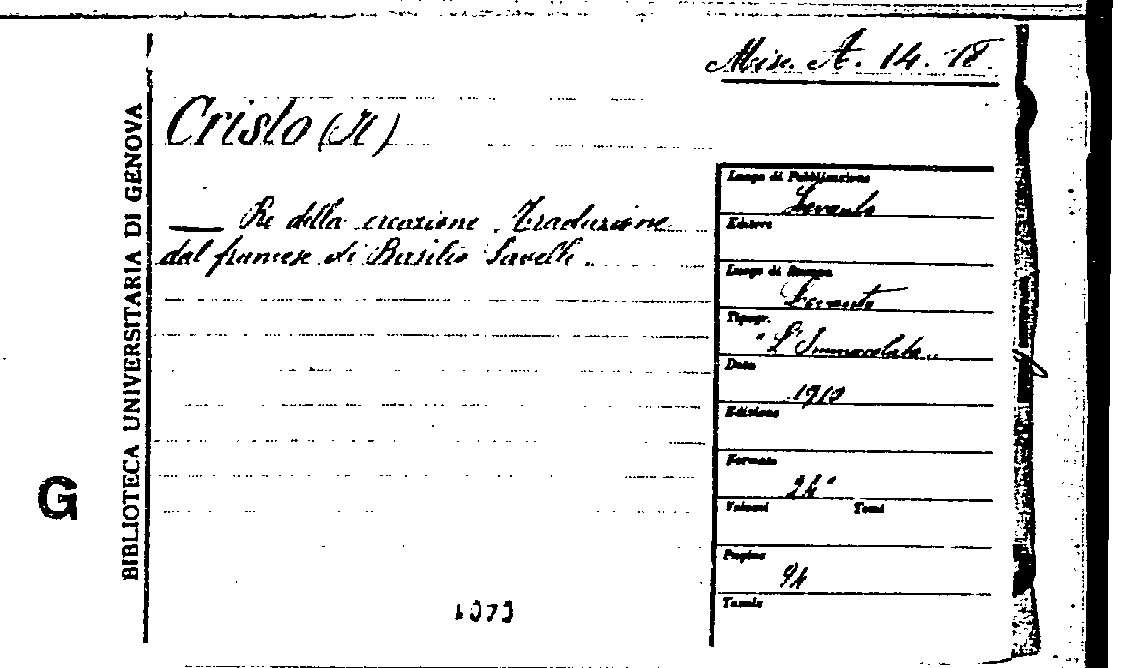 Misc. A. 14. 18.
Cristo (Il)
— Re della creazione. Traduzione
dal francese di Basilio Savelli.
BIBLIOTECA UNIVERSITARIA DI GENOVA
G
Luogo di Pubblicazione
Levanto
Editore
Luogo di Stampa
Levanto
Tipogr.
"L'Immacolata"
Data
1910
Edizione
Formato
24°
Volumi Tomi
Pagine
94
Tavole